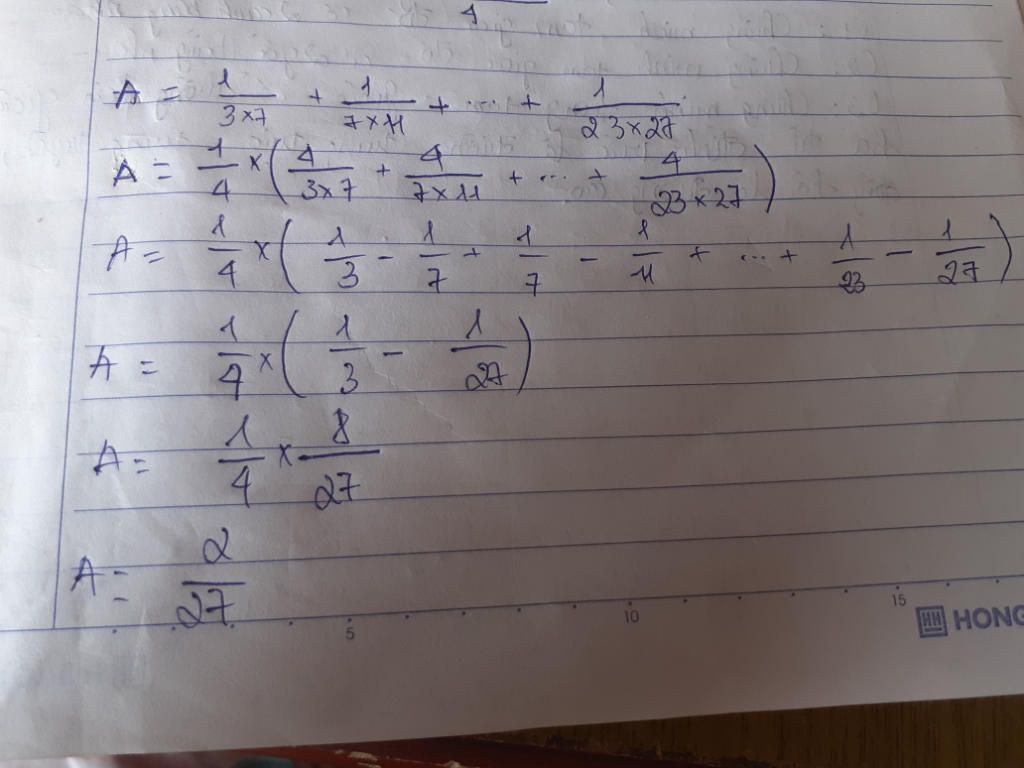 4
A = 1/(3×7) + 1/(7×11) + ... + 1/(23×27)
A = 1/4 × (4/(3×7) + 4/(7×11) + ... + 4/(23×27))
A = 1/4 × (1/3 - 1/7 + 1/7 - 1/11 + ... + 1/23 - 1/27)
A = 1/4 × (1/3 - 1/27)
A = 1/4 × 8/27
A = 2/27
5 10 15
HONG